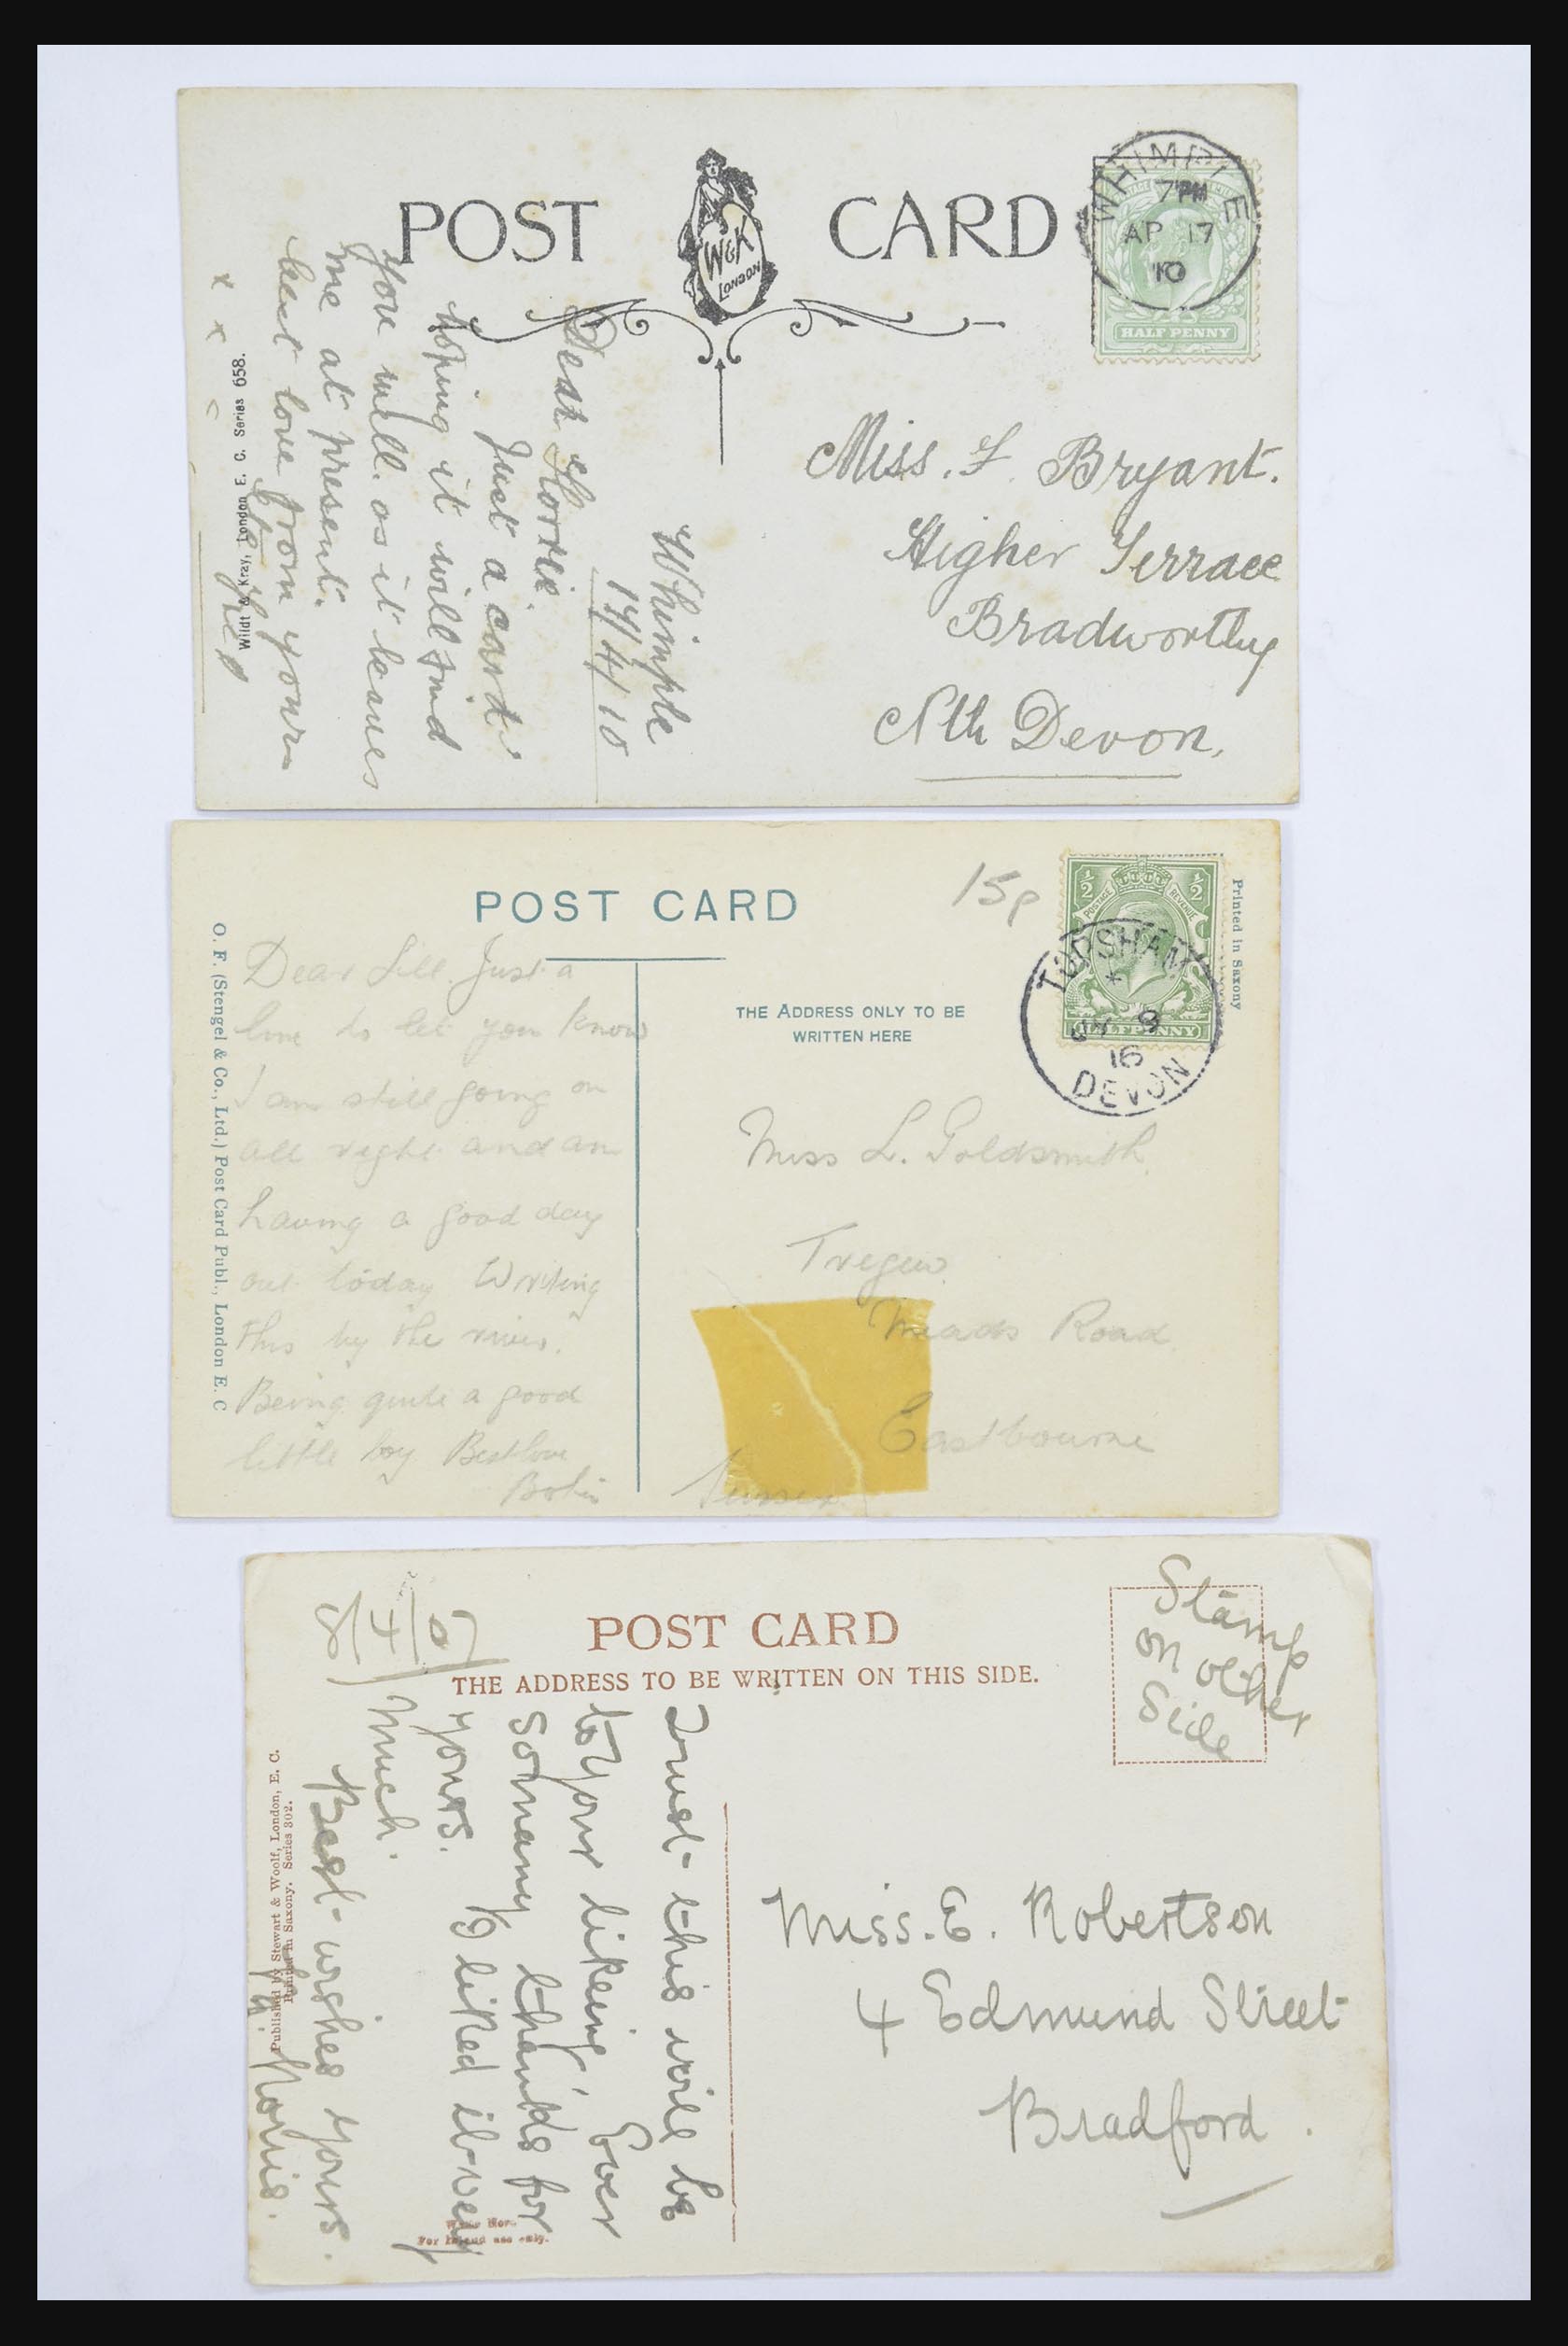 POST CARD
W&K
LONDON
WHIMPLE
7 PM
AP 17
10
HALF PENNY
Miss. F. Bryant.
Higher Terrace
Bradworthy
Nth Devon.
Whimple
17/4/10
Dear Florrie.
Just a card
hoping it will find
you well. as it leaves
me at present.
best love from your
x x
Wildt & Kray, London E. C. Series 658.
POST CARD
15p
Printed in Saxony
1/2 1/2
POSTAGE REVENUE
HALFPENNY
TOPSHAM
*
JY 9
16
DEVON
THE ADDRESS ONLY TO BE
WRITTEN HERE
Dear Lill. Just a
line to let you know
I am still going on
all right and am
having a good day
out today Writing
this by the river.
Being quite a good
little boy Best love
Miss L. Goldsmith.
Meads Road.
Eastbourne
Sussex.
O. F. (Stengel & Co., Ltd.) Post Card Publ., London E. C
POST CARD
THE ADDRESS TO BE WRITTEN ON THIS SIDE.
Stamp
on other
Side
Miss. E. Robertson
4 Edmund Street
Bradford.
Trust this will be
to your likeing. Ever
So many thanks for
yours. I liked it very
much.
Best wishes yours.
Published by Stewart & Woolf, London, E. C.
Printed in Saxony. Series 302.
For Inland use only.